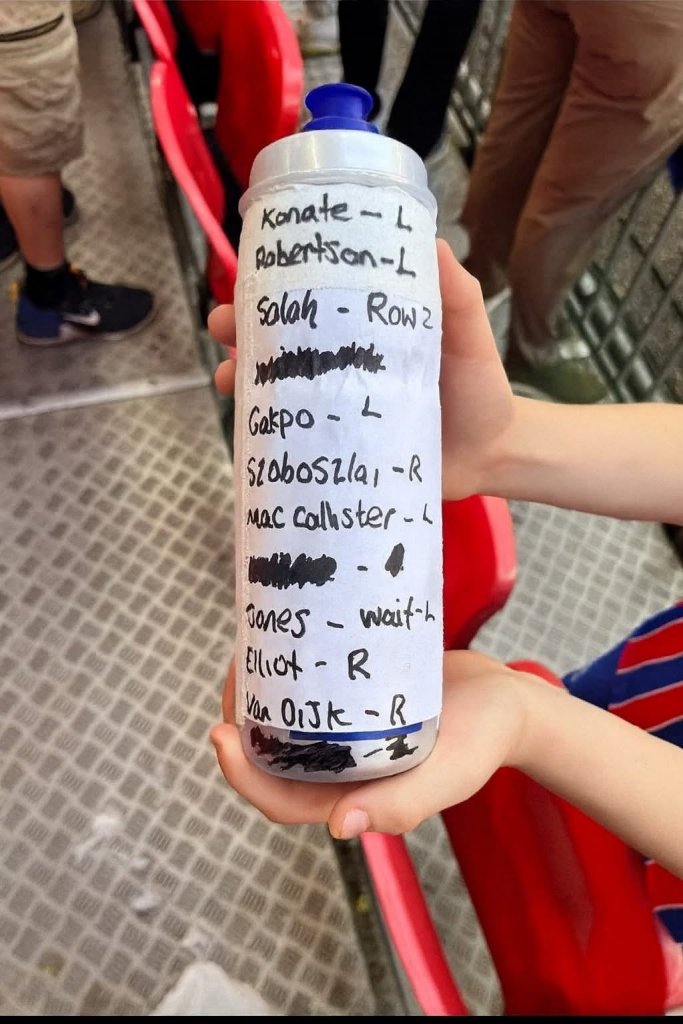 Konate - L
Robertson - L
Salah - Row 2
Gakpo - L
Szoboszlai - R
Mac callister - L
Jones - wait - L
Elliot - R
Van Dijk - R